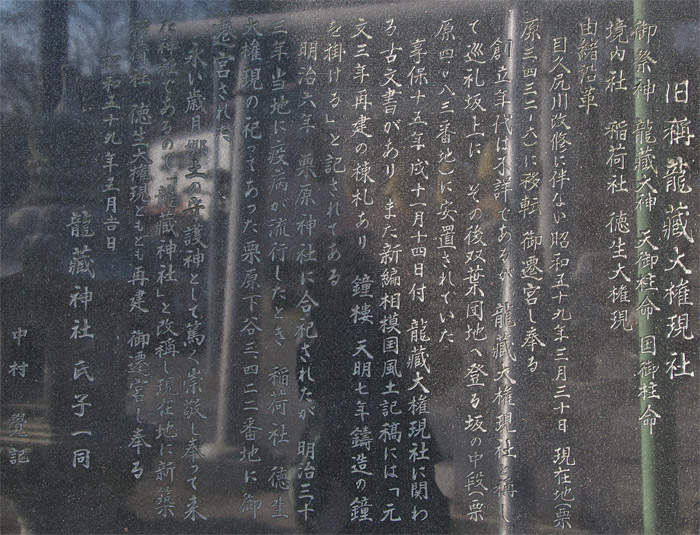 旧称龍藏大権現社
御祭神 龍藏大神 天御柱命 国御柱命
境内社 稲荷社 徳生大権現
由緒沿革
目久尻川改修に伴ない昭和五十九年三月三十日 現在地(栗
原三四三二-六)に移転 御遷宮し奉る
創立年代は不詳であるが 龍藏大権現社と称し
て巡礼坂上に その後双葉団地へ登る坂の中段(栗
原四〇八三番地)に安置されていた
享保十五年戌十一月十四日付 龍藏大権現社に関わ
る古文書があり また新編相模国風土記稿には「元
文三年再建の棟札あり 鐘楼 天明七年鋳造の鐘
を掛ける」と記されてある
明治六年 栗原神社に合祀されたが 明治三十
三年当地に疫病が流行したとき 稲荷社 徳生
大権現の祀ってあった栗原下谷三四二二番地に御
遷宮された
永い歳月郷土の守護神として篤く崇敬し奉って来
た神社であるので「龍藏神社」と改称し現在地に新築
稲荷社 徳生大権現ともども再建 御遷宮し奉る
昭和五十九年三月吉日
龍藏神社 氏子一同
中村 記